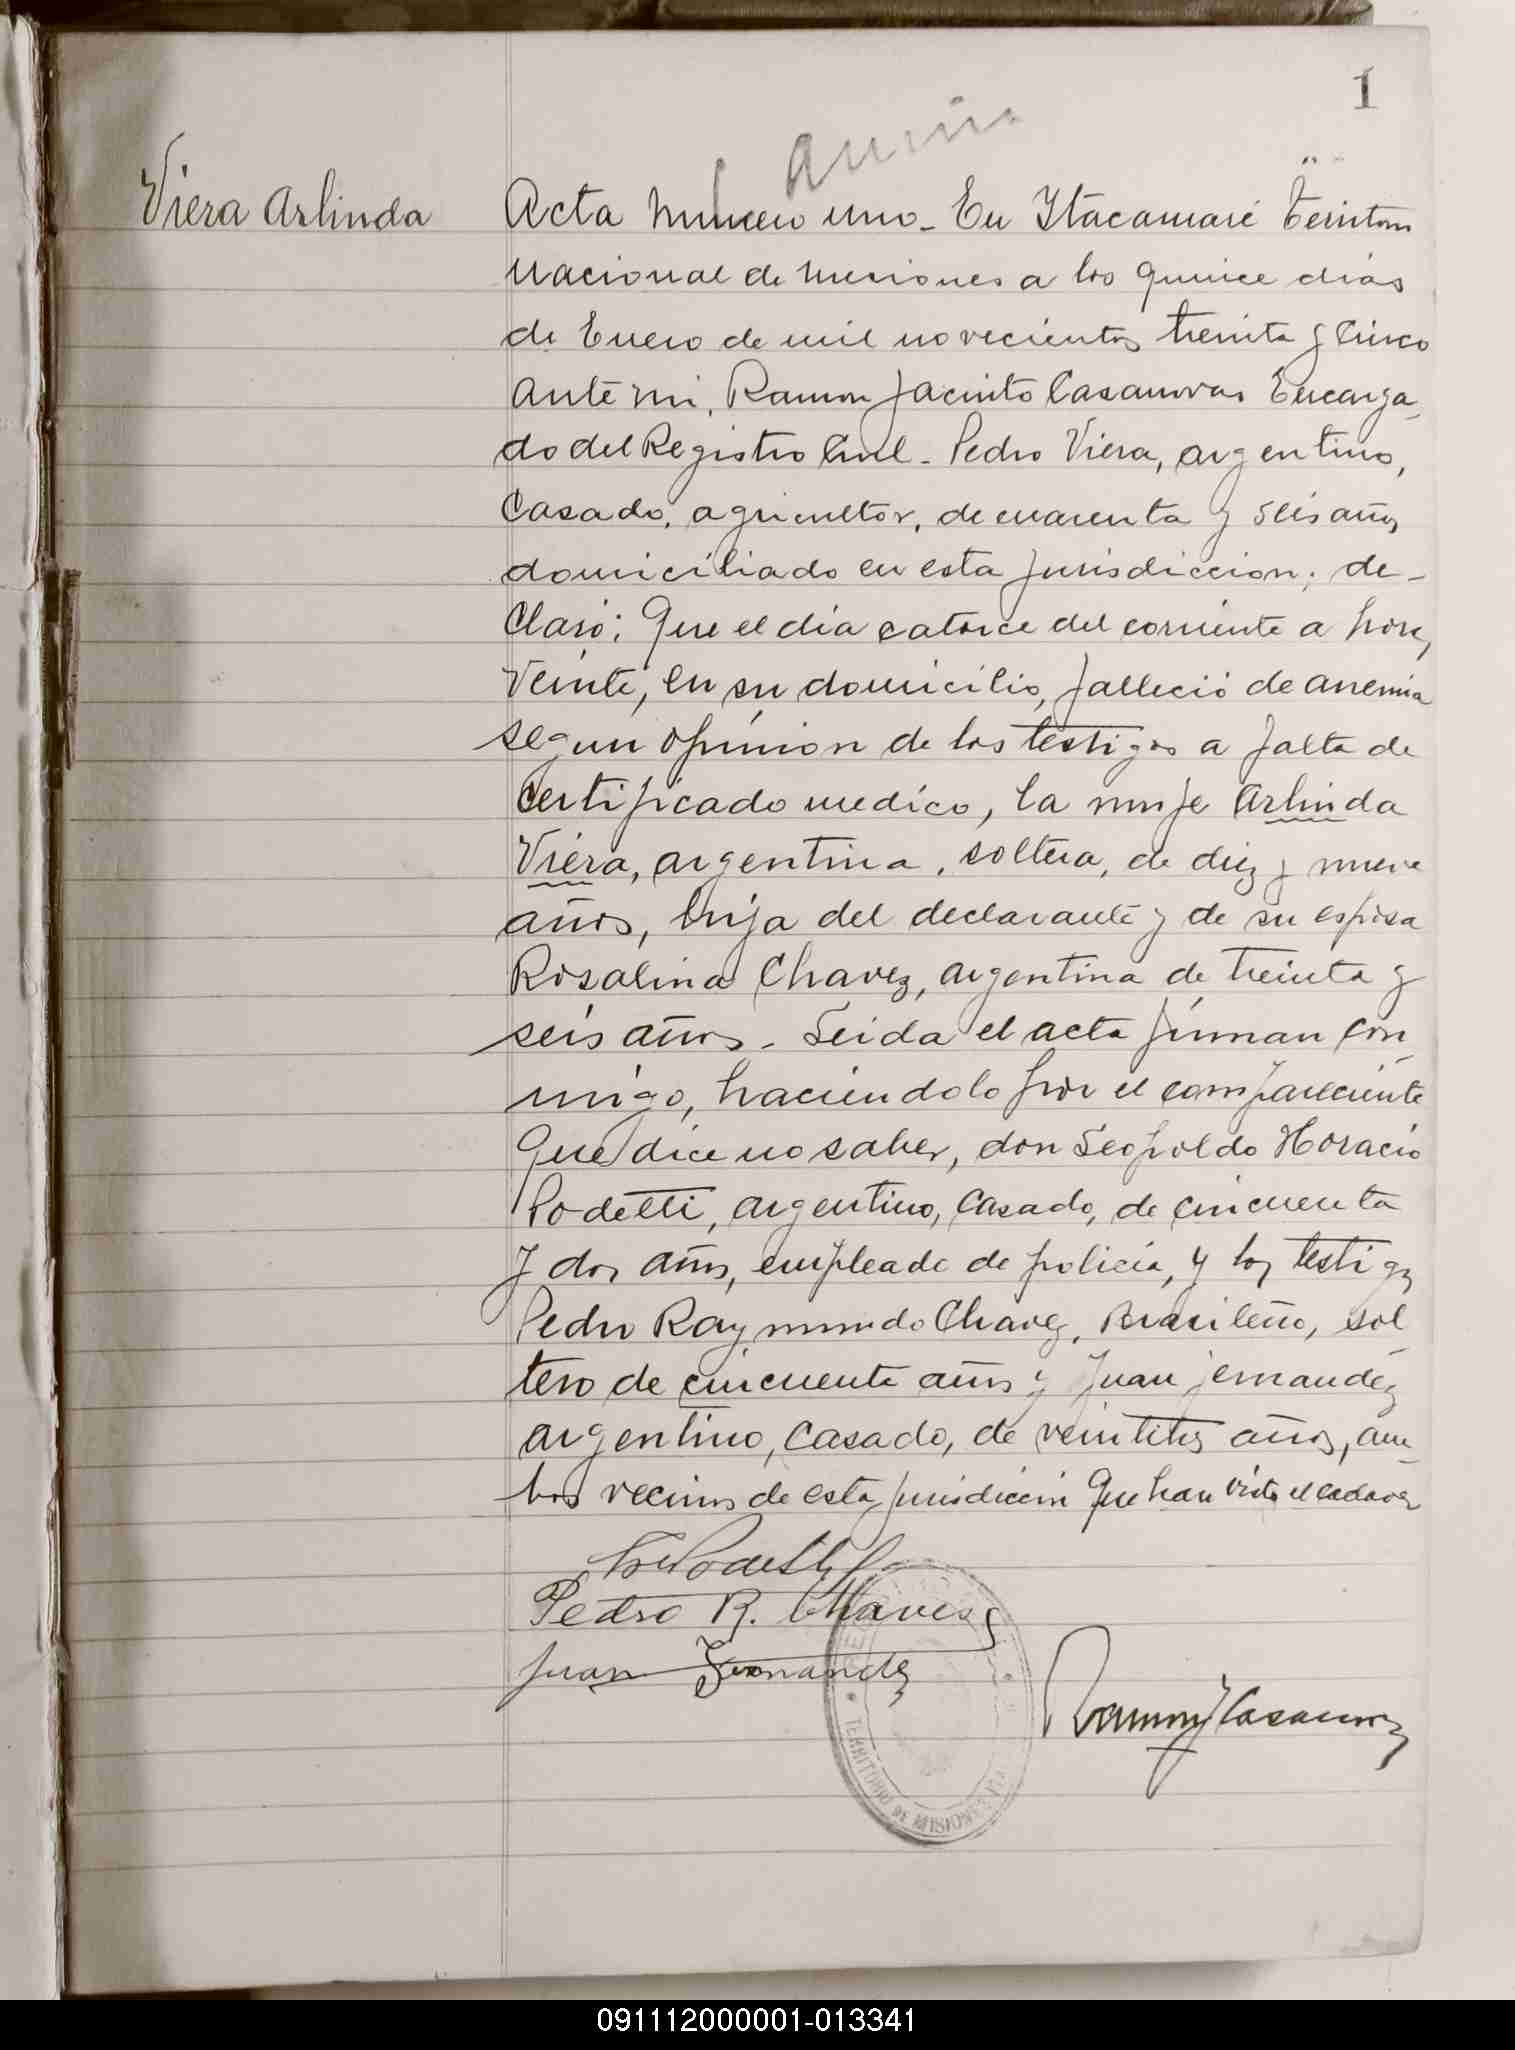 1
Viera Arlinda
Acta numero uno - En Itacaruaré Territorio
Nacional de Misiones a los quince dias
de Enero de mil novecientos treinta y cinco
ante mi, Ramon Jacinto Casanovas Encarga-
do del Registro Civil - Pedro Viera, argentino,
casado, agricultor, de cuarenta y seis años
domiciliado en esta jurisdiccion; de-
claró: Que el dia catorce del corriente a horas
veinte, en su domicilio, falleció de anemia
segun opinion de los testigos a falta de
certificado medico, la muje Arlinda
Viera, argentina, soltera, de diez y nueve
años, hija del declarante y de su esposa
Rosalina Chavez, argentina de treinta y
seis años. Leida el acta firman con
migo, haciendolo por el compareciente
que dice no saber, don Leopoldo Horacio
Podetti, argentino, casado, de cincuenta
y dos años, empleado de policia, y los testigos
Pedro Raymundo Chavez, Brasileño, sol
tero de cincuenta años y Juan Fernandez
argentino, casado, de veintitres años, am-
bos vecinos de esta jurisdiccion que han visto el cadaver
Pedro R. Chaves
Juan Fernandez
Ramon J Casanovas
TERRITORIO DE MISIONES
091112000001-013341